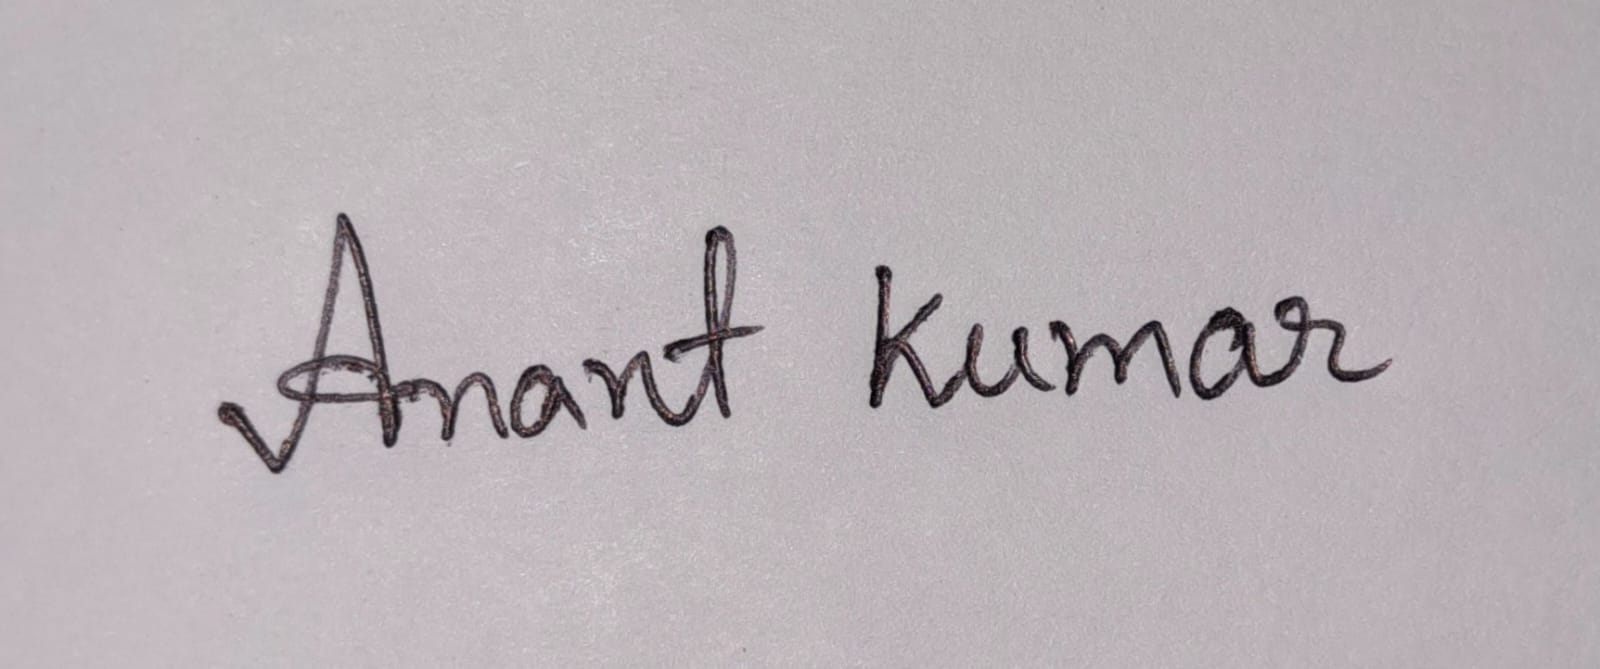 Anant Kumar